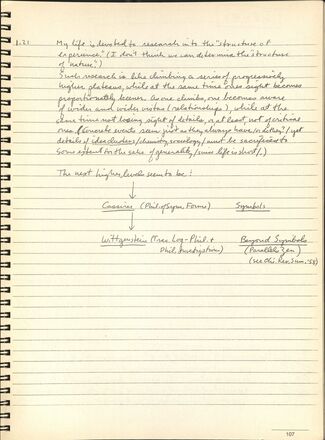 1.21. My life is devoted to research into the "structure of
experience." (I don't think we can determine the "structure
of nature.")
Such research is like climbing a series of progressively
higher plateaus, while at the same time one's sight becomes
proportionately keener. As one climbs, one becomes aware
of wider and wider vistas (relationships), while at the
same time not losing sight of details, or at least, not of critical
ones. (Concrete events seem just as they always have, or better,/yet
details of idea clusters/chemistry, sociology/must be sacrificed to
some extent for the sake of generality/since life is short/.)
The next higher levels seem to be:
Cassirer (Phil. of Sym. Forms) Symbols
Wittgenstein (Trac Log-Phil. + Beyond Symbols
Phil. Investigations) (Parallel: Zen)
(see Chi. Rev. Sum. '58)
107